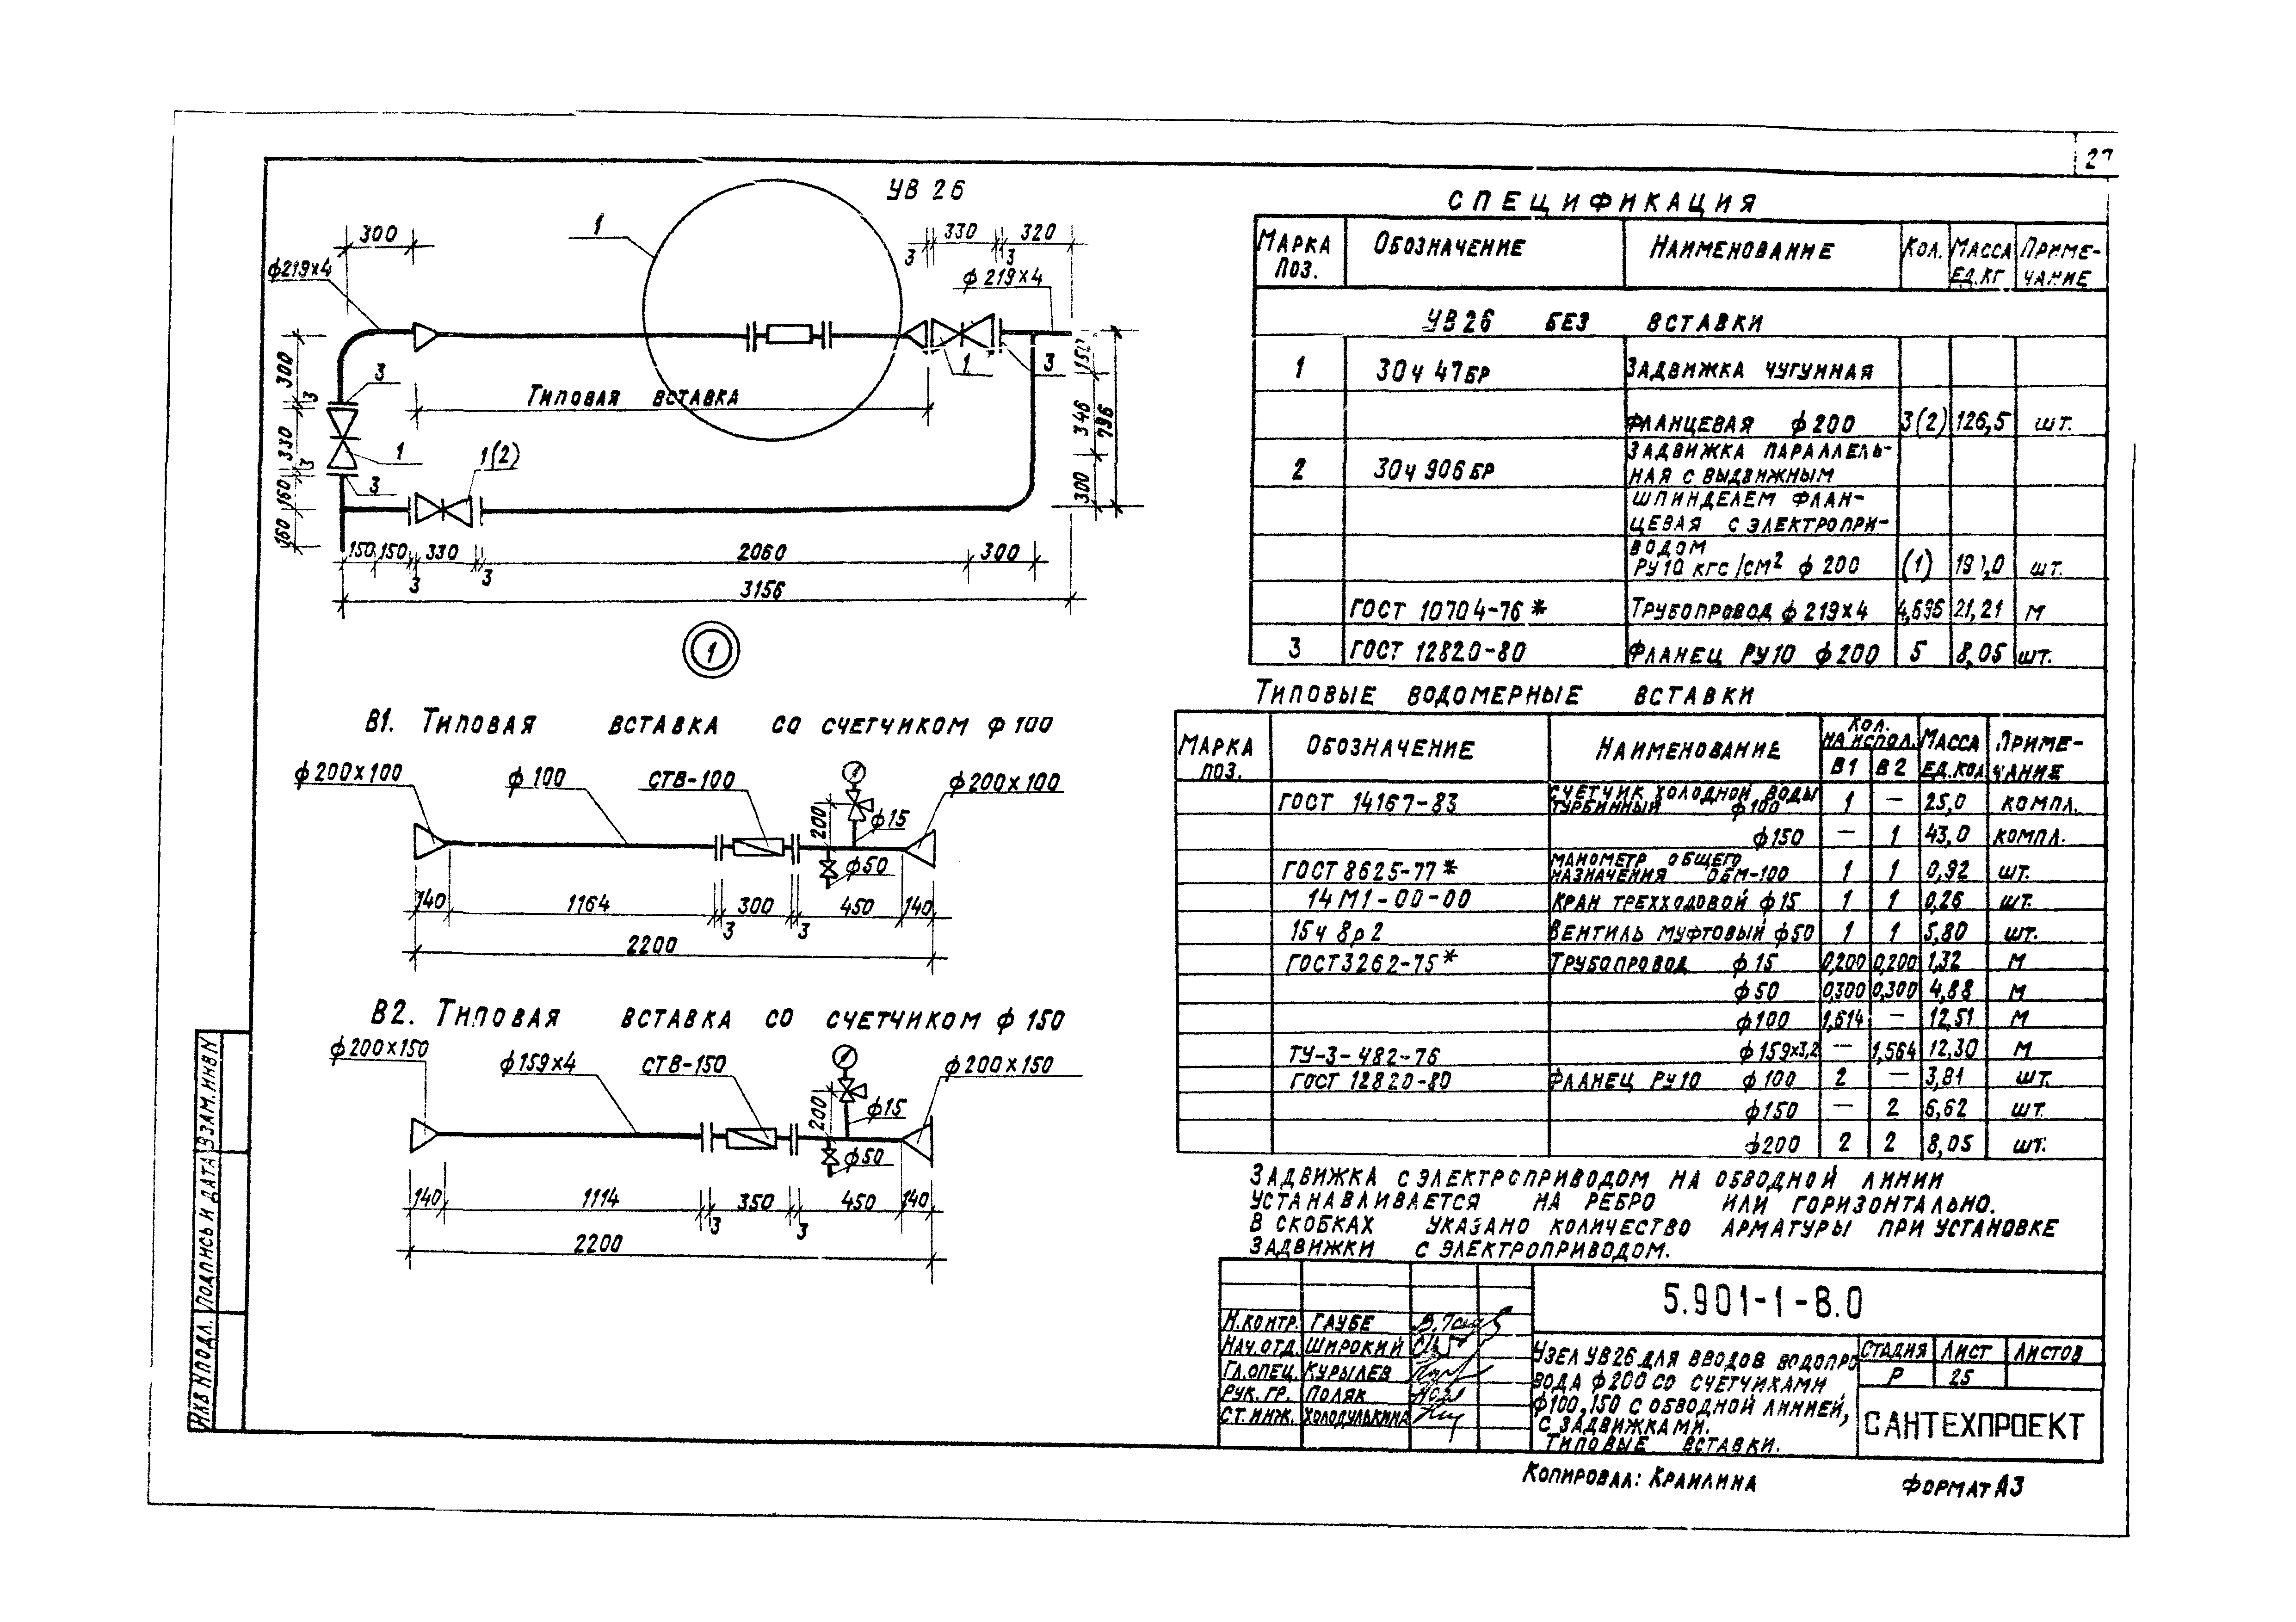 27
УВ 26
1
300
ф219х4
3 330 3 320
ф 219х4
3
1
3
1
3
1(2)
Типовая вставка
300
3
330
3
160
160
150
346
300
796
150 150 3 330 3 2060 300
3156
1
В1. Типовая вставка со счетчиком ф 100
ф200х100
ф 100
СТВ-100
ф200х100
200
ф15
ф50
140 1164 3 300 3 450 140
2200
В2. Типовая вставка со счетчиком ф 150
ф200х150
ф159х4
СТВ-150
ф200х150
200
ф15
ф50
140 1114 3 350 3 450 140
2200
Спецификация
Марка поз. Обозначение Наименование Кол. Масса ед.кг Примечание
УВ26 без вставки
1 30ч 47бр Задвижка чугунная
фланцевая ф200 3(2) 126,5 шт.
2 30ч 906бр Задвижка параллель-
ная с выдвижным
шпинделем флан-
цевая с электропри-
водом
Ру10 кгс/см2 ф 200 (1) шт.
ГОСТ 10704-76* Трубопровод ф 219х4 21,21 м
3 ГОСТ 12820-80 Фланец Ру10 ф200 5 8,05 шт.
Типовые водомерные вставки
Марка поз. Обозначение Наименование Кол. на испол. В1 В2 Масса ед.кол. Примечание
ГОСТ 14167-83 Счетчик холодной воды
турбинный ф100 1 — 25,0 компл.
ф150 — 1 43,0 компл.
ГОСТ 8625-77* Манометр общего
назначения ОБМ-100 1 1 0,92 шт.
14М1-00-00 Кран трехходовой ф15 1 1 0,26 шт.
15ч 8р2 Вентиль муфтовый ф50 1 1 5,80 шт.
ГОСТ3262-75* Трубопровод ф15 0,200 0,200 1,32 м
ф50 0,300 0,300 4,88 м
ф100 1,614 — 12,51 м
ТУ-3-482-76 ф159х3,2 — 1,564 12,30 м
ГОСТ 12820-80 Фланец Ру10 ф100 2 — 3,81 шт.
ф150 — 2 6,62 шт.
ф200 2 2 8,05 шт.
Задвижка с электроприводом на обводной линии
устанавливается на ребро или горизонтально.
В скобках указано количество арматуры при установке
задвижки с электроприводом.
5.901-1-В.0
Н.контр. Гаубе
Нач.отд. Широкий
Гл.спец. Курылев
Рук. гр. Поляк
Ст.инж. Холодулькина
Узел УВ26 для вводов водопро
вода ф200 со счетчиками
ф100,150 с обводной линией,
с задвижками.
Типовые вставки.
Стадия Лист Листов
Р 25
САНТЕХПРОЕКТ
Копировал: Краилина
Формат А3
Инв Nподл. Подпись и дата Взам.инвN